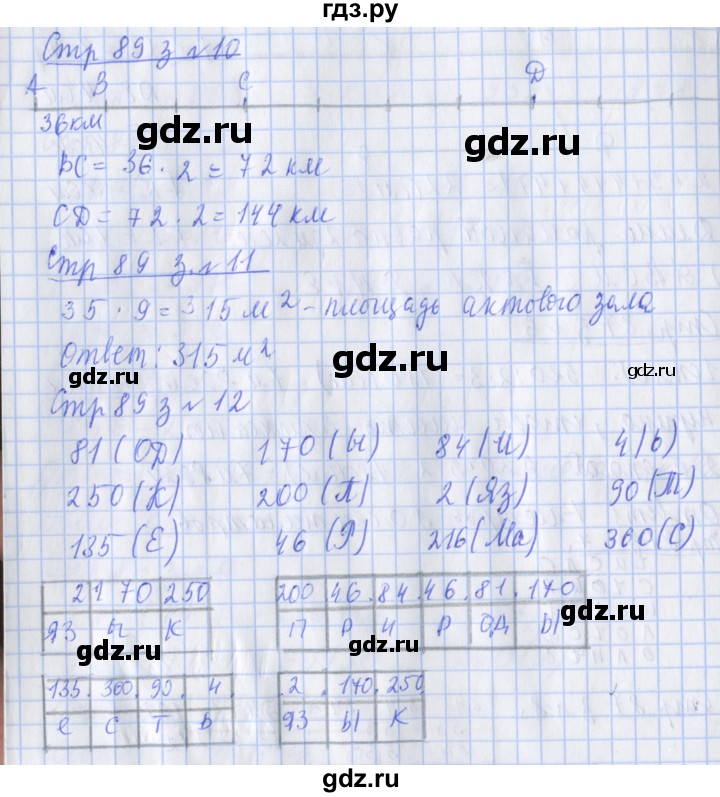 гдз.ру
Стр 89 з №10
А В С D
36км
gdz.ru gdz.ru
ВС = 36 · 2 = 72 км
СD = 72 · 2 = 144 км
Стр 89 з №11
35 · 9 = 315 м² - площадь актового зала
Ответ: 315 м²
gdz.ru gdz.ru gdz.ru
Стр 89 з №12
81 (ОД) 170 (Ы) 84 (И) 4 (Ь)
250 (К) 200 (П) 2 (ЯЗ) 90 (Т)
135 (Е) 46 (Р) 216 (Ма) 360 (С)
gdz.ru gdz.ru
2 170 250 200 46. 84. 46. 81. 170
ЯЗ Ы К П Р И Р ОД Ы
gdz.ru gdz.ru
135. 360. 90. 4. .2 .170. 250
е с т ь ЯЗ Ы К
gdz.ru gdz.ru
gdz.ru